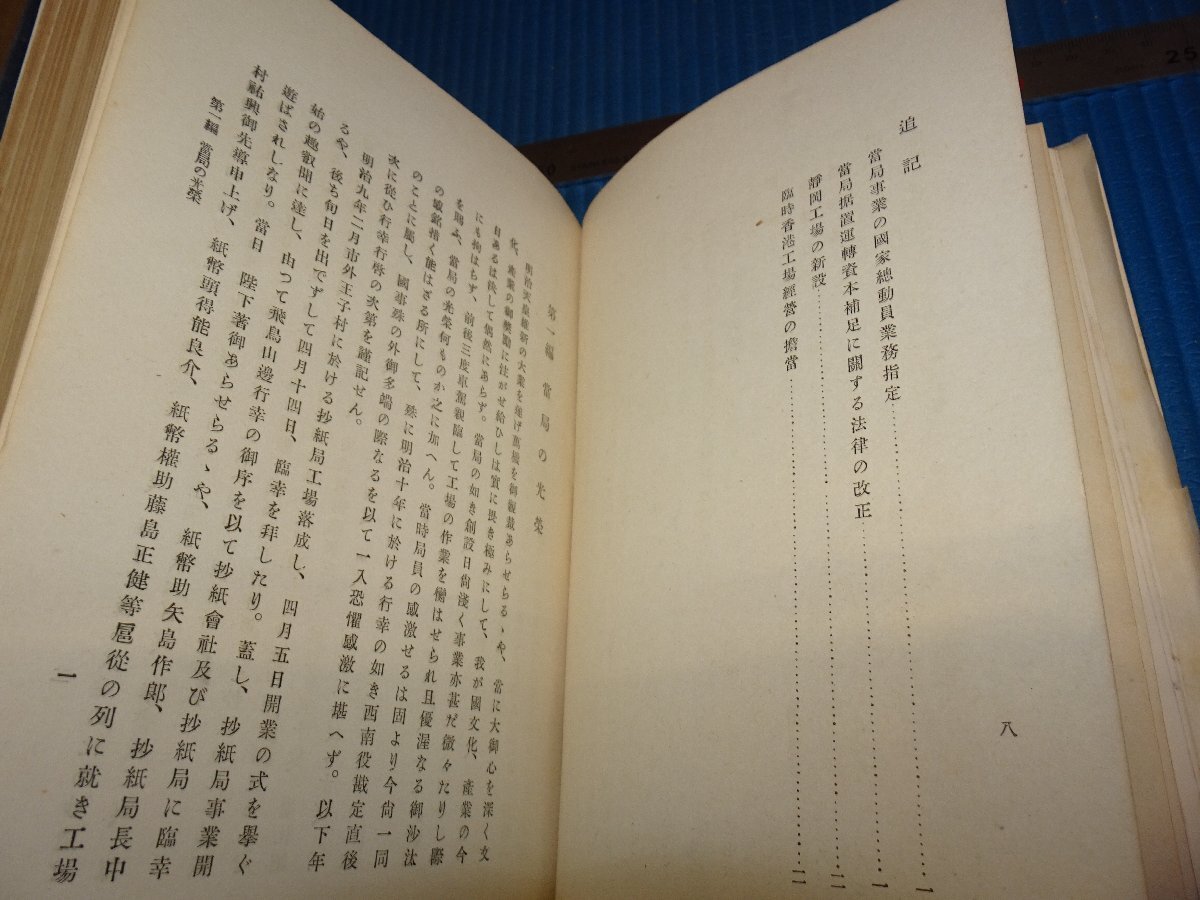 追記
當局事業の國家總動員業務指定…………一
當局据置運轉資本補足に關する法律の改正…………一
靜岡工場の新設…………二
臨時香港工場經營の擔當…………二
八
第一編 當局の光榮
明治天皇維新の大業を遂げ萬機を御親裁あらせらるゝや、當に大御心を深く文
化、産業の御奬勵に注がせ給ひしは實に畏き極みにして、我が國文化、産業の今
日あるは決して偶然にあらず。當局の如き創設日尚淺く事業亦甚だ微々たりし際
にも拘はらず、前後三度車駕親臨して工場の作業を臠はせられ且優渥なる御沙汰
を賜ふ、當局の光榮何ものか之に加へん。當時局員の感激せるは固より今尚一同
の感銘措く能はざる所にして、殊に明治十年に於ける行幸の如き西南役戡定直後
のことに屬し、國事殊の外御多端の際なるを以て一入恐懼感激に堪へず。以下年
次に從ひ行幸行啓の次第を謹記せん。
明治九年二月市外王子村に於ける抄紙局工場落成し、四月五日開業の式を擧ぐ
るや、後ち旬日を出でずして四月十四日、臨幸を拜したり。蓋し、抄紙局事業開
始の趣叡聞に達し、由つて飛鳥山邊行幸の御序を以て抄紙會社及び抄紙局に臨幸
遊ばされしなり。當日 陛下著御あらせらるゝや、紙幣助矢島作郎、抄紙局長中
村祐興御先導申上げ、紙幣頭得能良介、紙幣權助藤島正健等扈從の列に就き工場
第一編 當局の光榮
一
25